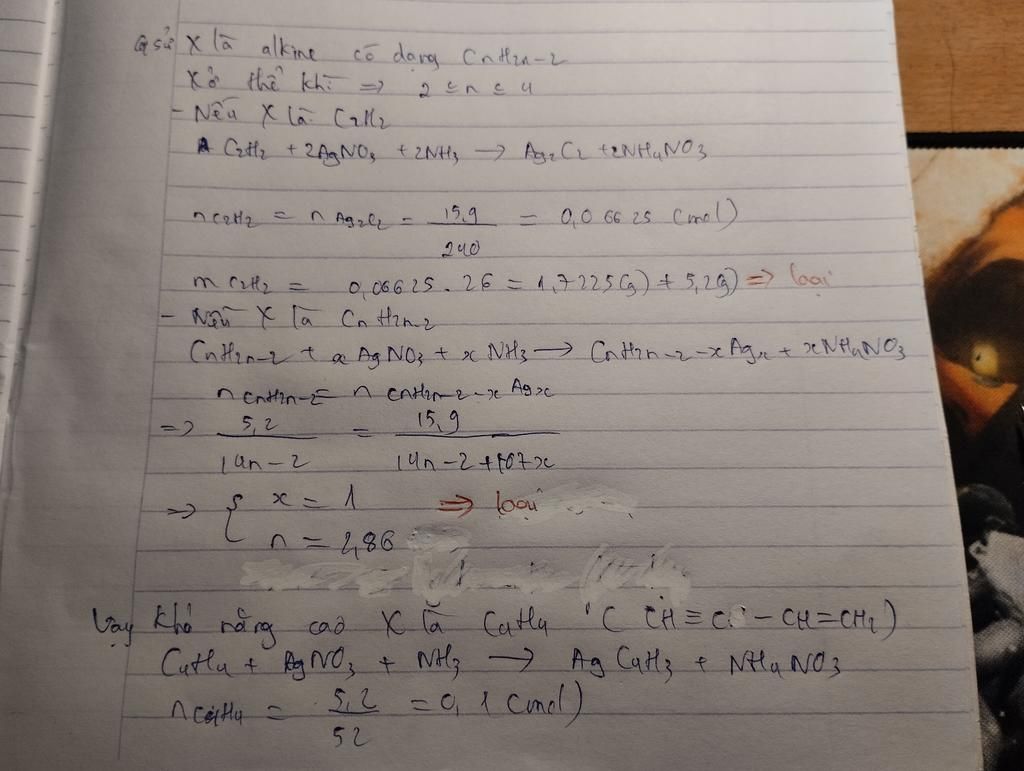 G sử X là alkine có dạng CnH2n-2
X ở thể khí => 2 ≤ n ≤ 4
- Nếu X là C2H2
C2H2 + 2AgNO3 + 2NH3 → Ag2C2 + 2NH4NO3
nC2H2 = n Ag2C2 = 15,9/240 = 0,06625 (mol)
m C2H2 = 0,06625 . 26 = 1,7225(g) ≠ 5,2(g) => loại
- Nếu X là CnH2n-2
CnH2n-2 + x AgNO3 + x NH3 → CnH2n-2-xAgx + xNH4NO3
n CnH2n-2 = n CnH2n-2-x Agx
=> 5,2/14n-2 = 15,9/14n-2+107x
=> { x = 1 => loại
n = 2,86
Vậy khả năng cao X là C4H4 ( CH ≡ C - CH=CH2)
C4H4 + AgNO3 + NH3 → AgC4H3 + NH4NO3
nC4H4 = 5,2/52 = 0,1 (mol)